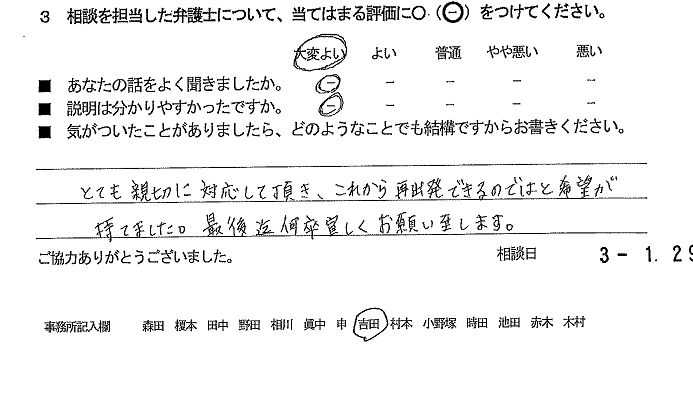 3 相談を担当した弁護士について、当てはまる評価に○(⊖)をつけてください。
大変よい よい 普通 やや悪い 悪い
■ あなたの話をよく聞きましたか。 － － － － －
■ 説明は分かりやすかったですか。 － － － － －
■ 気がついたことがありましたら、どのようなことでも結構ですからお書きください。
とても親切に対応して頂き、これから再出発できるのではと希望が
持てました。最後迄何卒宜しくお願い至します。
ご協力ありがとうございました。 相談日 3-1.29
事務所記入欄 森田 榎本 田中 野田 相川 眞中 申 吉田 村本 小野塚 時田 池田 赤木 木村